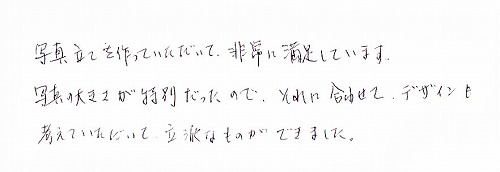 写真立てを作っていただいて、非常に満足しています。
写真の大きさが特別だったので、それに合わせて、デザインも
考えていただいて、立派なものができました。